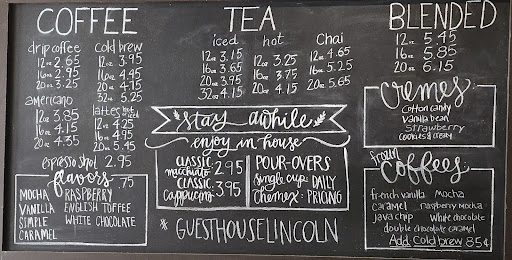 COFFEE
drip coffee
12oz 2.65
16oz 2.95
20oz 3.25
cold brew
12oz 3.95
16oz 4.45
20oz 4.75
32oz 5.25
americano
12oz 3.85
16oz 4.15
20oz 4.35
lattes
12oz 4.25
16oz 4.95
20oz 5.45
espresso shot 2.95
flavors .75
MOCHA
VANILLA
SIMPLE
CARAMEL
RASPBERRY
ENGLISH TOFFEE
WHITE CHOCOLATE
TEA
iced
12oz 3.15
16oz 3.65
20oz 3.95
32oz 4.15
hot
12oz 3.25
16oz 3.75
20oz 4.15
Chai
12oz 4.65
16oz 5.25
20oz 5.65
stay awhile
enjoy in house
CLASSIC
macchiato 2.95
CLASSIC
cappuccino 3.95
POUR-OVERS
single cup: DAILY
chemex: PRICING
* GUESTHOUSELINCOLN
BLENDED
12oz 5.45
16oz 5.85
20oz 6.15
Cremes
Cotton candy
Vanilla bean
Strawberry
Cookies & creme
frozen
Coffees
french vanilla Mocha
caramel raspberry mocha
java chip White chocolate
double chocolate caramel
Add Cold brew 85¢